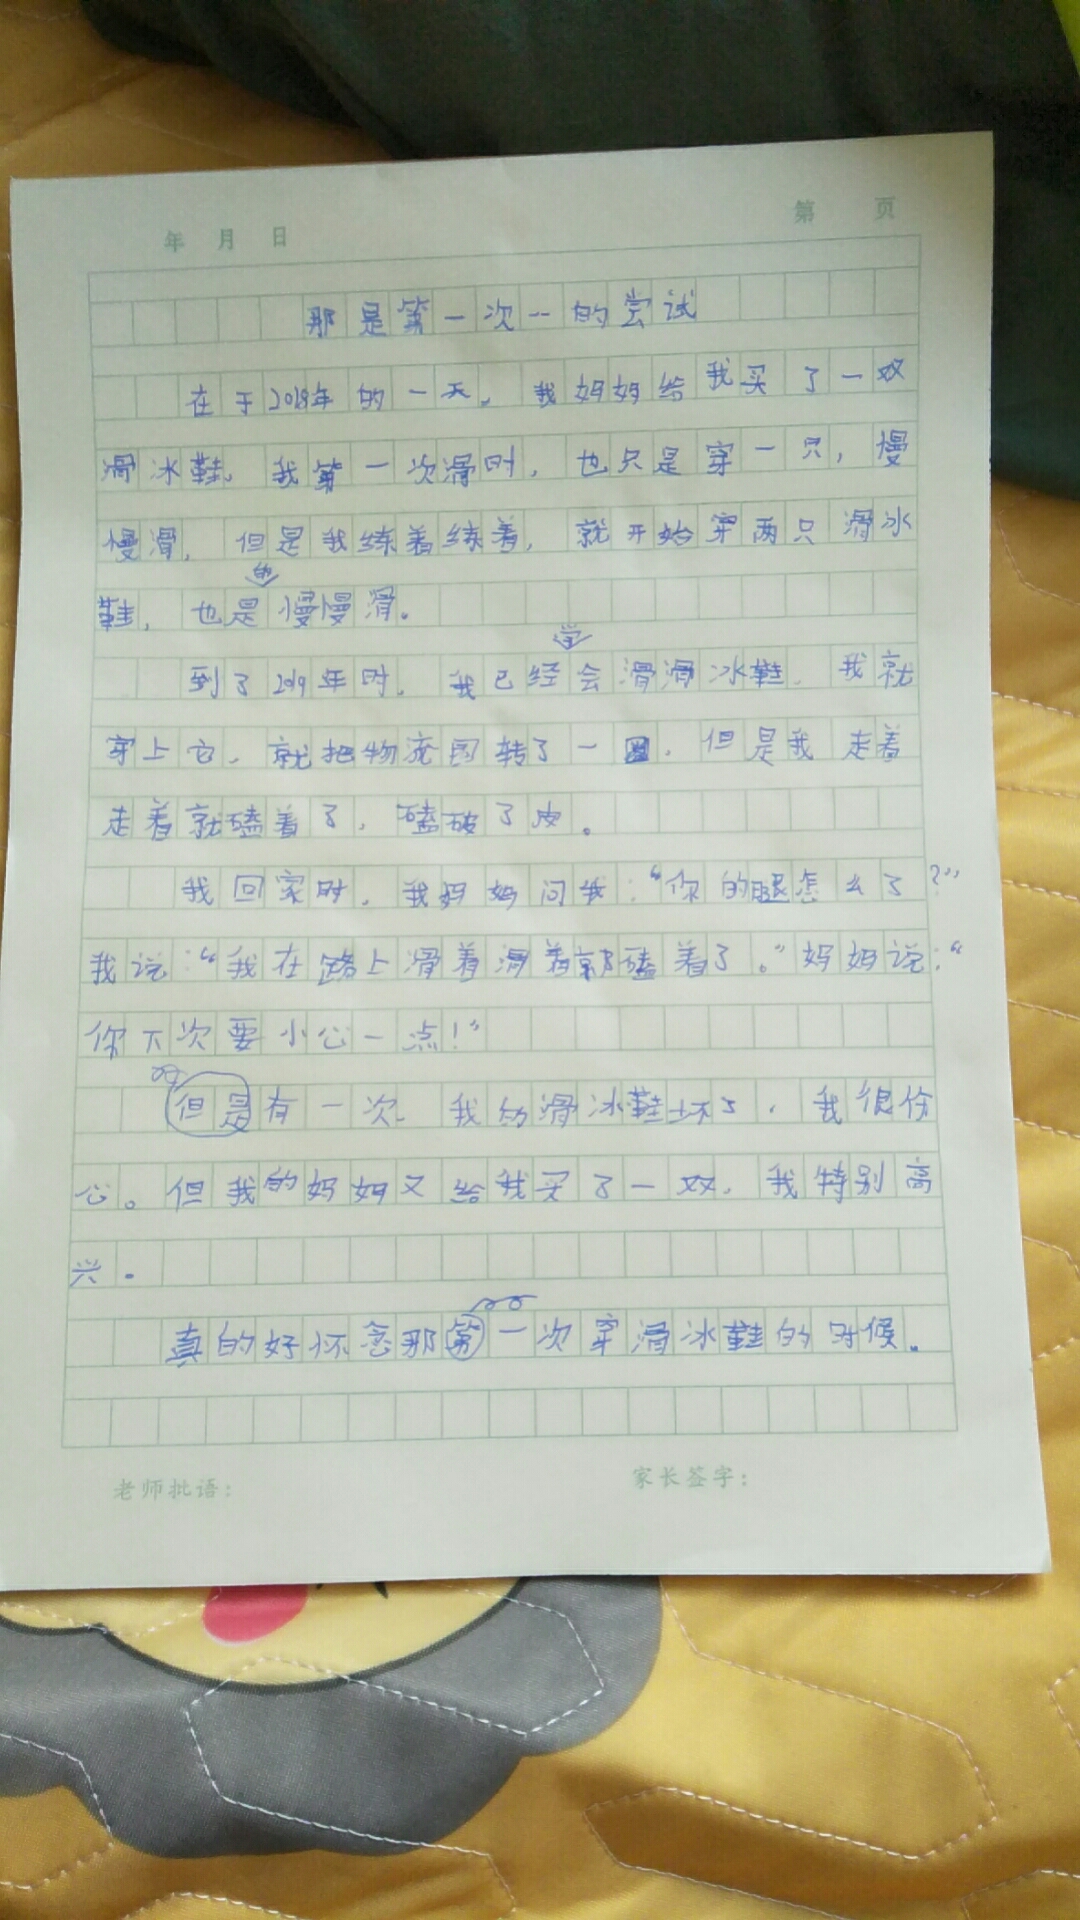 年 月 日
第 页
那是第一次--的尝试
在于2018年的一天，我妈妈给我买了一双
滑冰鞋，我第一次滑时，也只是穿一只，慢
慢滑，但是我练着练着，就开始穿两只滑冰
的
鞋，也是慢慢滑。
学
到了2019年时，我已经会滑滑冰鞋，我就
穿上它，就把物流园转了一圈，但是我走着
走着就磕着了，磕破了皮。
我回家时，我妈妈问我：“你的腿怎么了？”
我说：“我在路上滑着滑着就磕着了。”妈妈说：“
你下次要小心一点！”
但是有一次，我的滑冰鞋坏了，我很伤
心。但我的妈妈又给我买了一双，我特别高
兴。
真的好怀念那第一次穿滑冰鞋的时候。
老师批语：
家长签字：